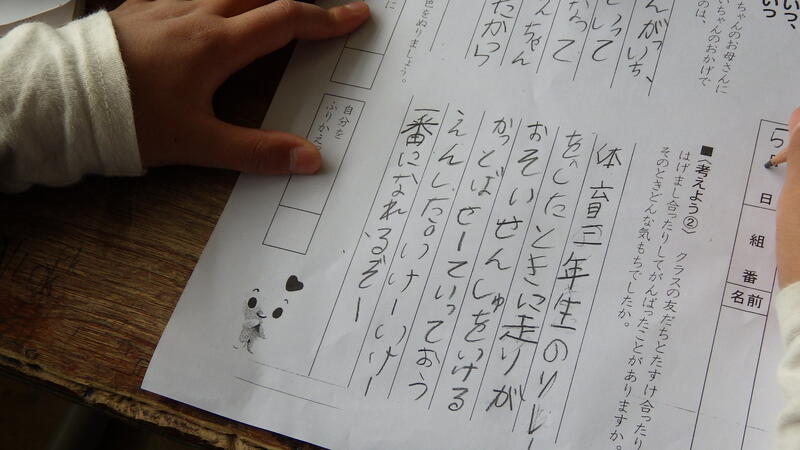 いつ、
いつ
ちゃんのお母さんに
いちゃんのおかげで
のは、
んがっいち、
いって
なって
んちゃん
たから
色をぬりましょう。
に
自分を
ふりかえ
5
日
組
番
名前
■〈考えよう②〉 クラスの友だちとたすけ合ったり
はげまし合ったりしてがんばったことがありますか。
そのときどんな気もちでしたか。
体育三年生のリレー
をしたときに走りが
おそいせんしゅをいける
かっとばせーていっておう
えんした。いけーいけー
一番になれるぞー